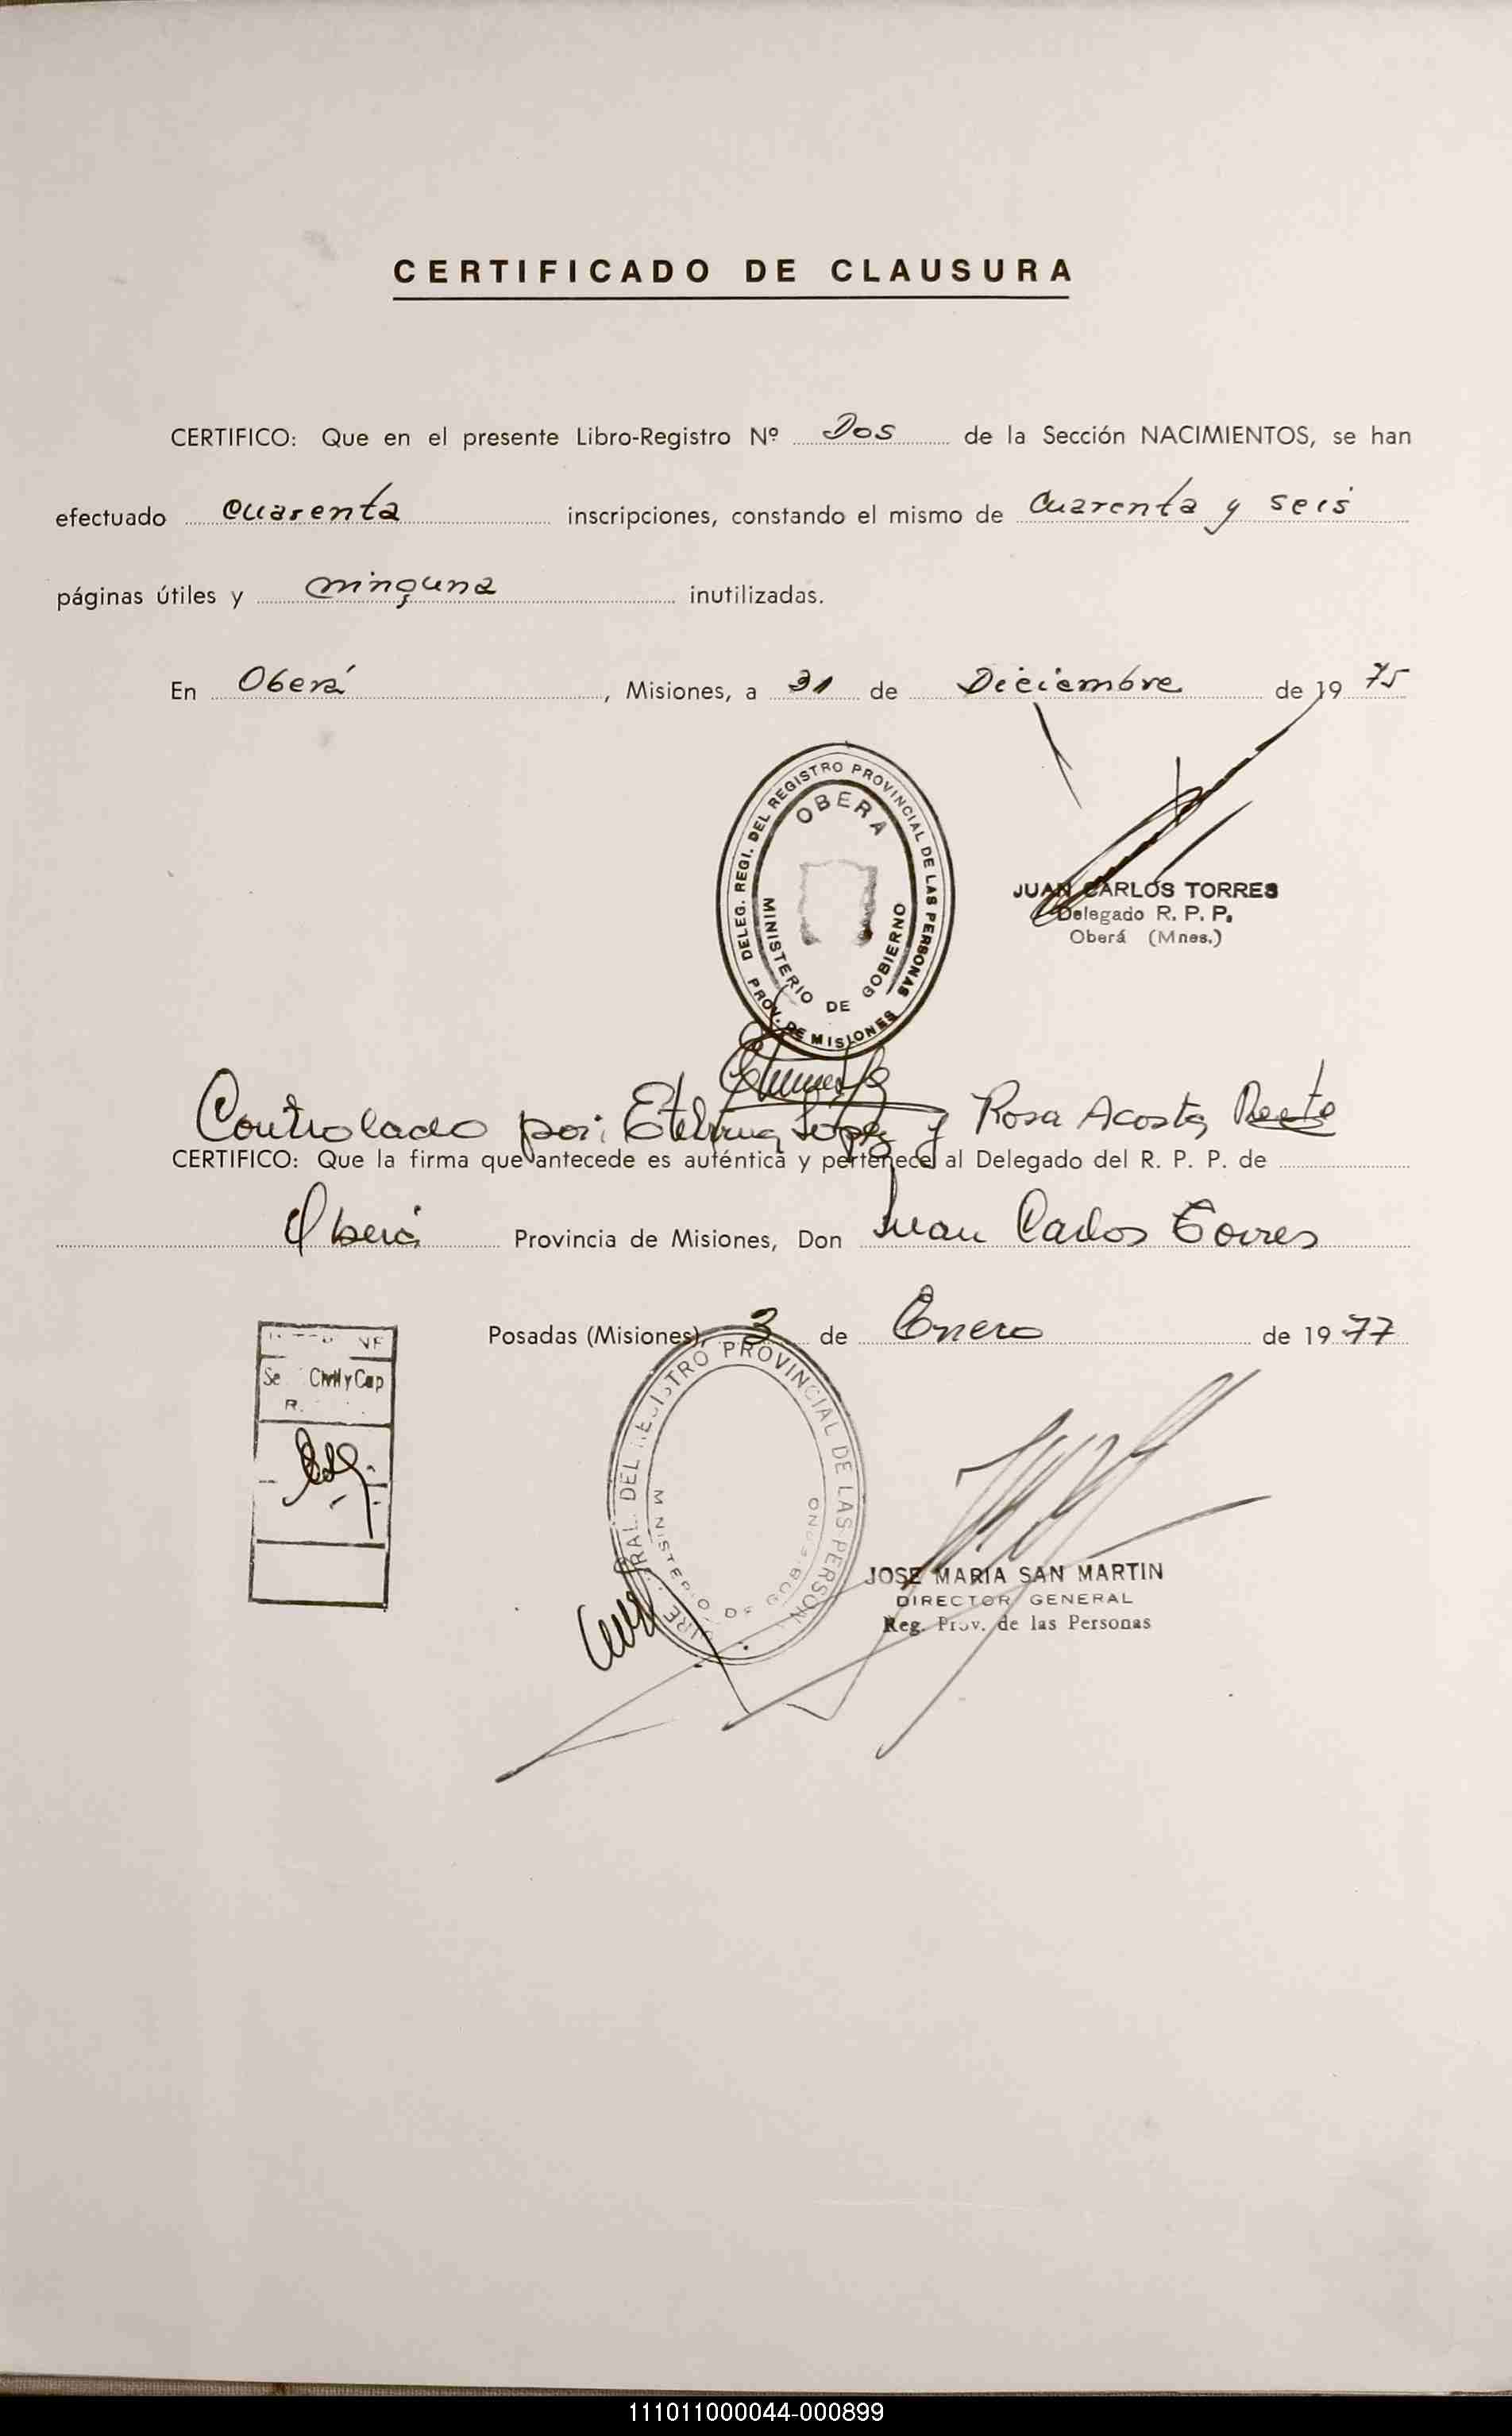 CERTIFICADO DE CLAUSURA
CERTIFICO: Que en el presente Libro-Registro Nº Dos de la Sección NACIMIENTOS, se han
efectuado cuarenta inscripciones, constando el mismo de cuarenta y seis
páginas útiles y ninguna inutilizadas.
En Oberá, Misiones, a 31 de Diciembre de 1975
DELEG. REGI. DEL REGISTRO PROVINCIAL DE LAS PERSONAS
PROV. DE MISIONES
OBERA
MINISTERIO DE GOBIERNO
JUAN CARLOS TORRES
Delegado R. P. P.
Oberá (Mnes.)
Controlado por: Etelvina López y Rosa Acosta
CERTIFICO: Que la firma que antecede es auténtica y pertenece al Delegado del R. P. P. de
Oberá Provincia de Misiones, Don Juan Carlos Torres
Posadas (Misiones), 3 de Enero de 1977
Civil y Cap
R.
RAL. DEL REGISTRO PROVINCIAL DE LAS PERSON
MINISTERIO DE GOBI
JOSE MARIA SAN MARTIN
DIRECTOR GENERAL
Reg. Prov. de las Personas
111011000044-000899